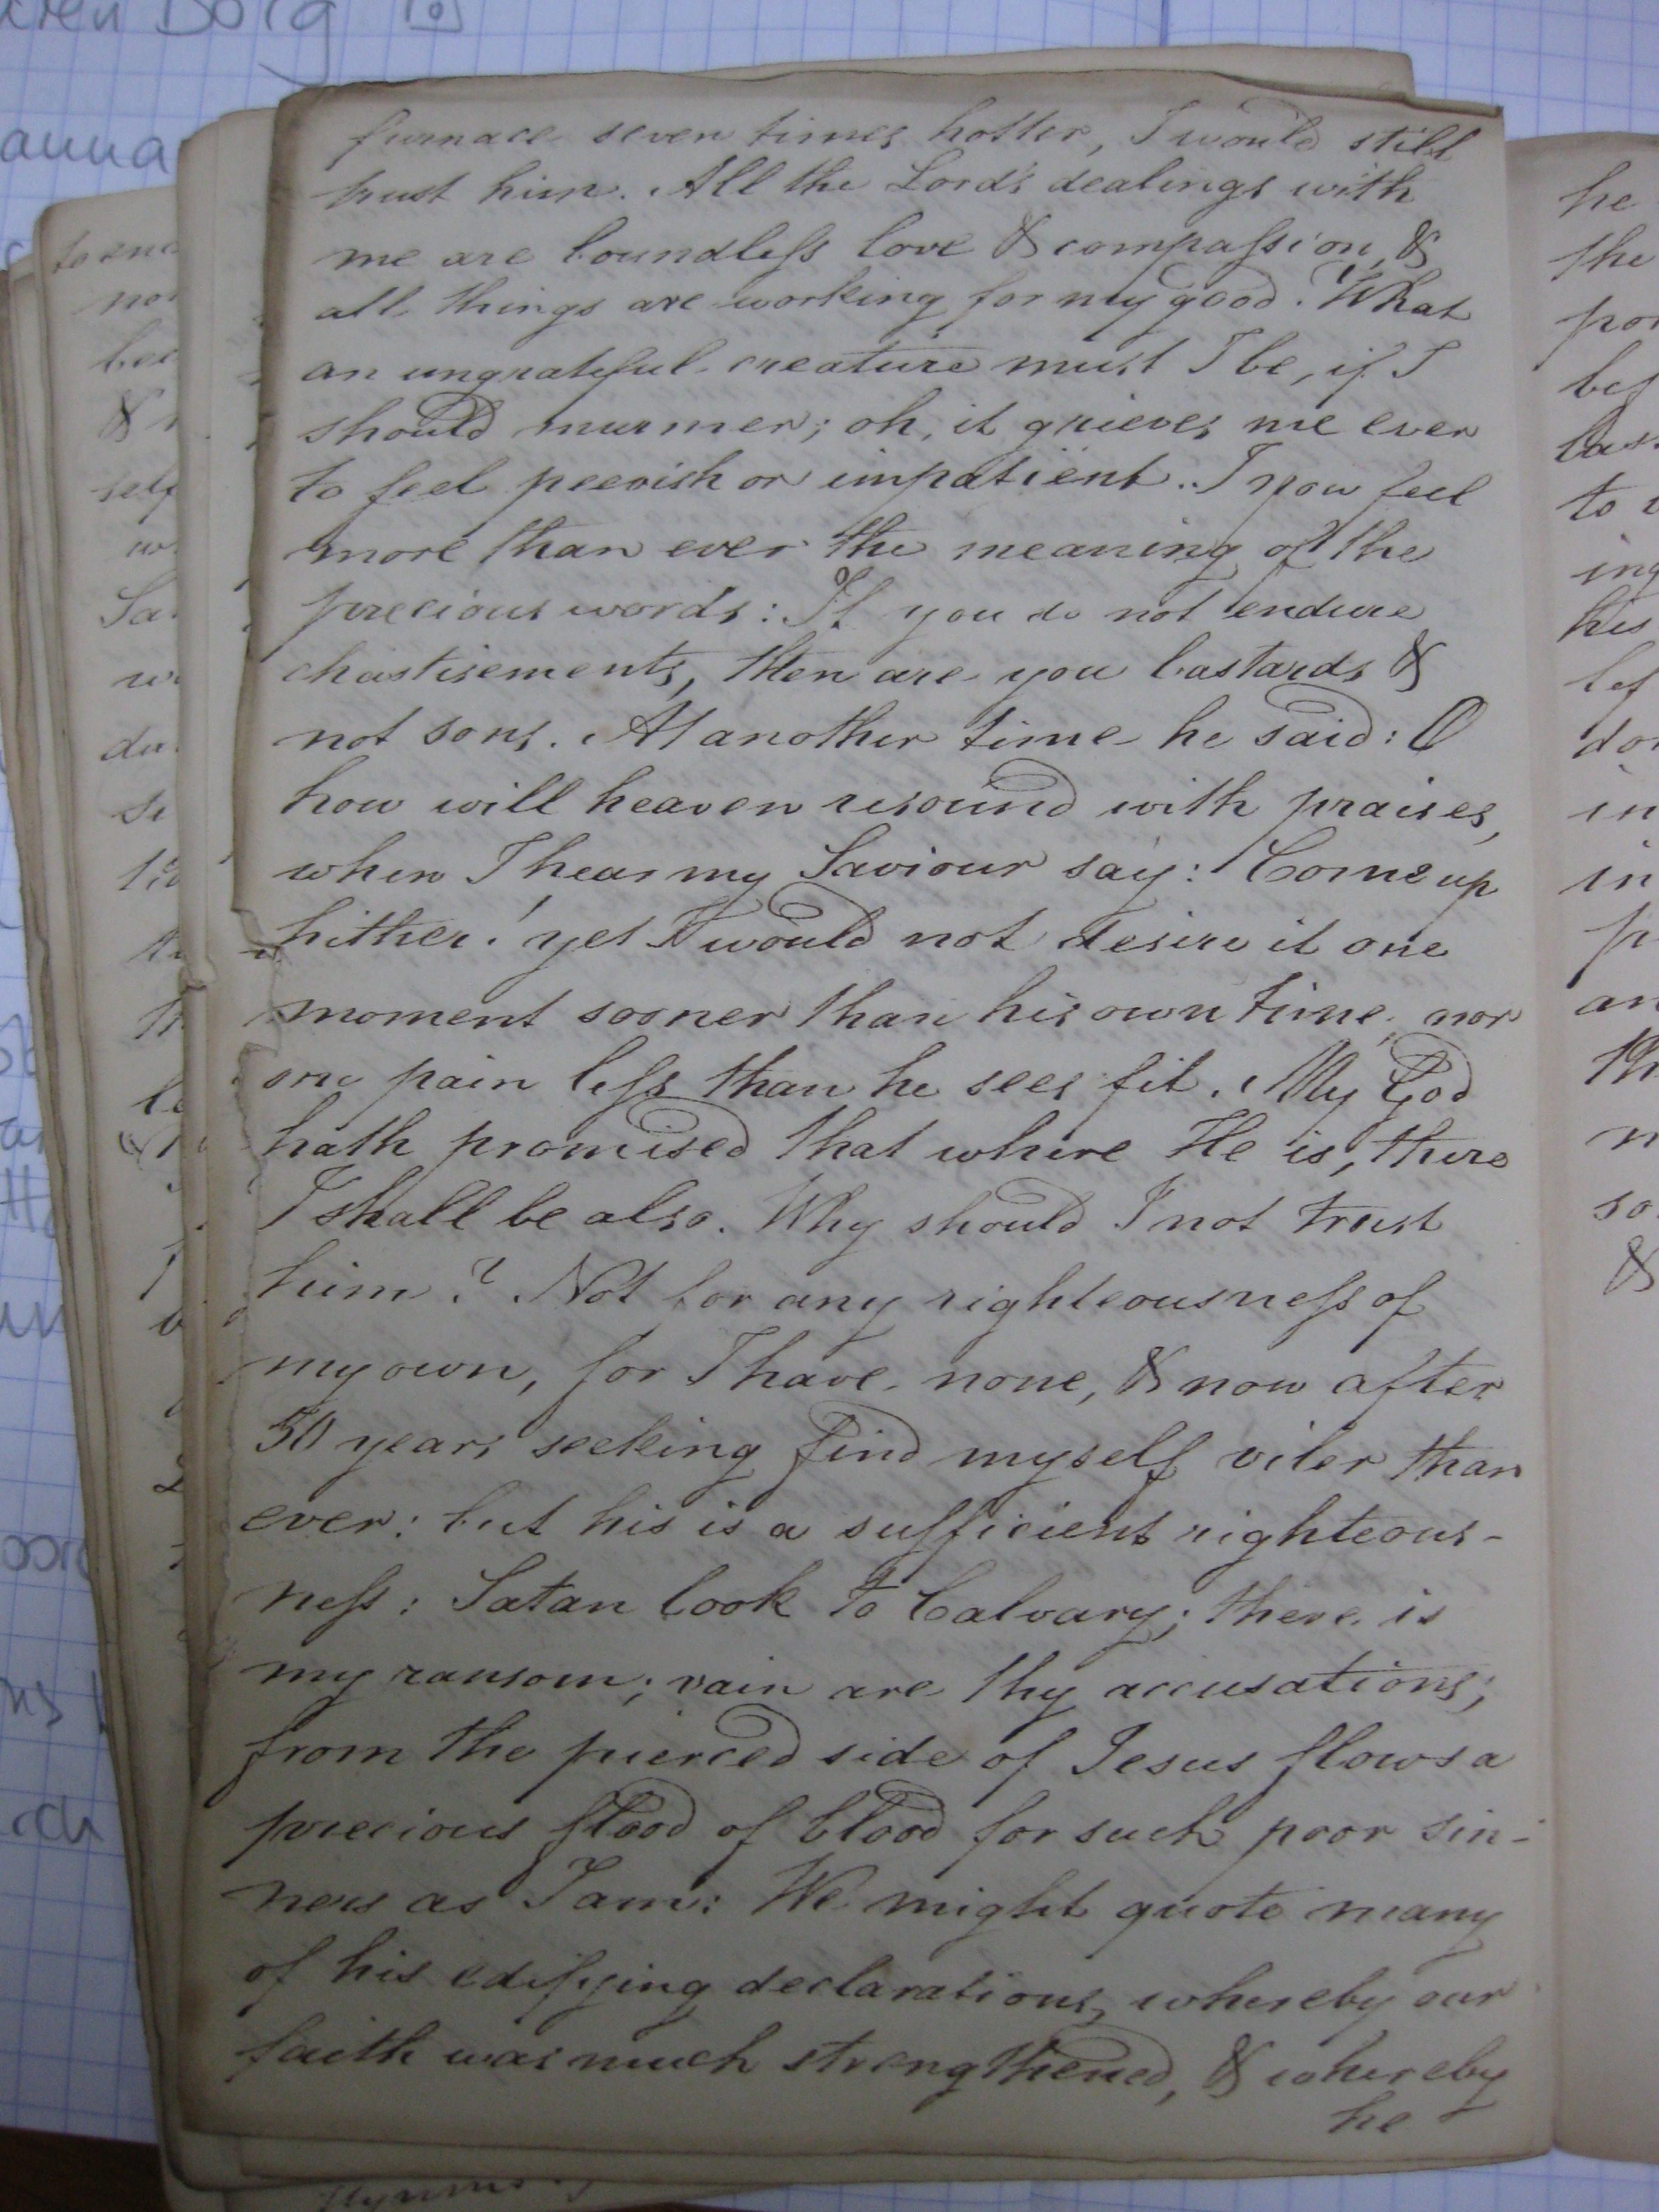 furnace seven times hotter, I would still
trust him. All the Lord's dealings with
me are boundless love & compassion, &
all things are working for my good. What
an ungrateful creature must I be, if I
should murmer; oh, it grieves me ever
to feel peevish or impatient. I now feel
more than ever the meaning of the
precious words: If you do not endure
chastisements, then are you bastards &
not sons. At another time he said: O
how will heaven resound with praises,
when I hear my Saviour say: Come up
hither! yet I would not desire it one
moment sooner than his own time, nor
one pain less than he sees fit. My God
hath promised that where He is, there
I shall be also. Why should I not trust
him? Not for any righteousness of
my own, for I have none, & now after
50 years seeking find myself viler than
ever: but his is a sufficient righteous-
ness: Satan look to Calvary; there is
my ransom; vain are thy accusations;
from the pierced side of Jesus flows a
precious flood of blood for such poor sin-
ners as I am: We might quote many
of his edifying declarations, whereby our
faith was much strengthened, & whereby
he